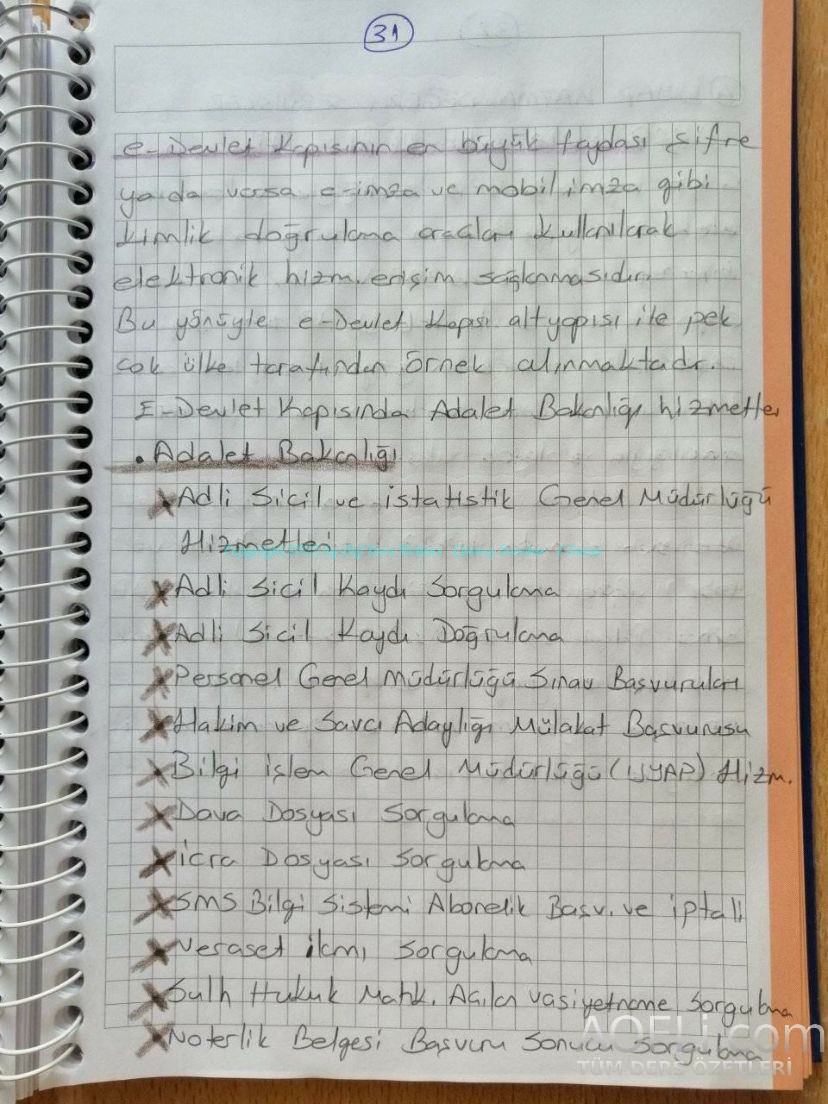 31
e-Devlet Kapısının en büyük faydası şifre
ya da varsa e-imza ve mobil imza gibi
kimlik doğrulama araçları kullanılarak
elektronik hizm. erişim sağlanmasıdır.
Bu yönüyle e-Devlet Kapısı altyapısı ile pek
çok ülke tarafından örnek alınmaktadır.
E-Devlet Kapısında Adalet Bakanlığı hizmetler
• Adalet Bakanlığı
x Adli Sicil ve istatistik Genel Müdürlüğü
Hizmetleri
x Adli Sicil Kaydı Sorgulama
x Adli Sicil Kaydı Doğrulama
x Personel Genel Müdürlüğü Sınav Başvuruları
x Hakim ve Savcı Adaylığı Mülakat Başvurusu
x Bilgi işlem Genel Müdürlüğü (UYAP) Hizm.
x Dava Dosyası Sorgulama
x icra Dosyası Sorgulama
x SMS Bilgi Sistemi Abonelik Başv. ve iptali
x Veraset ilamı Sorgulama
x Sulh Hukuk Mahk. Açılan vasiyetname Sorgulama
x Noterlik Belgesi Başvuru Sonucu Sorgulama
AOFLi.com
TÜM DERS ÖZETLERİ